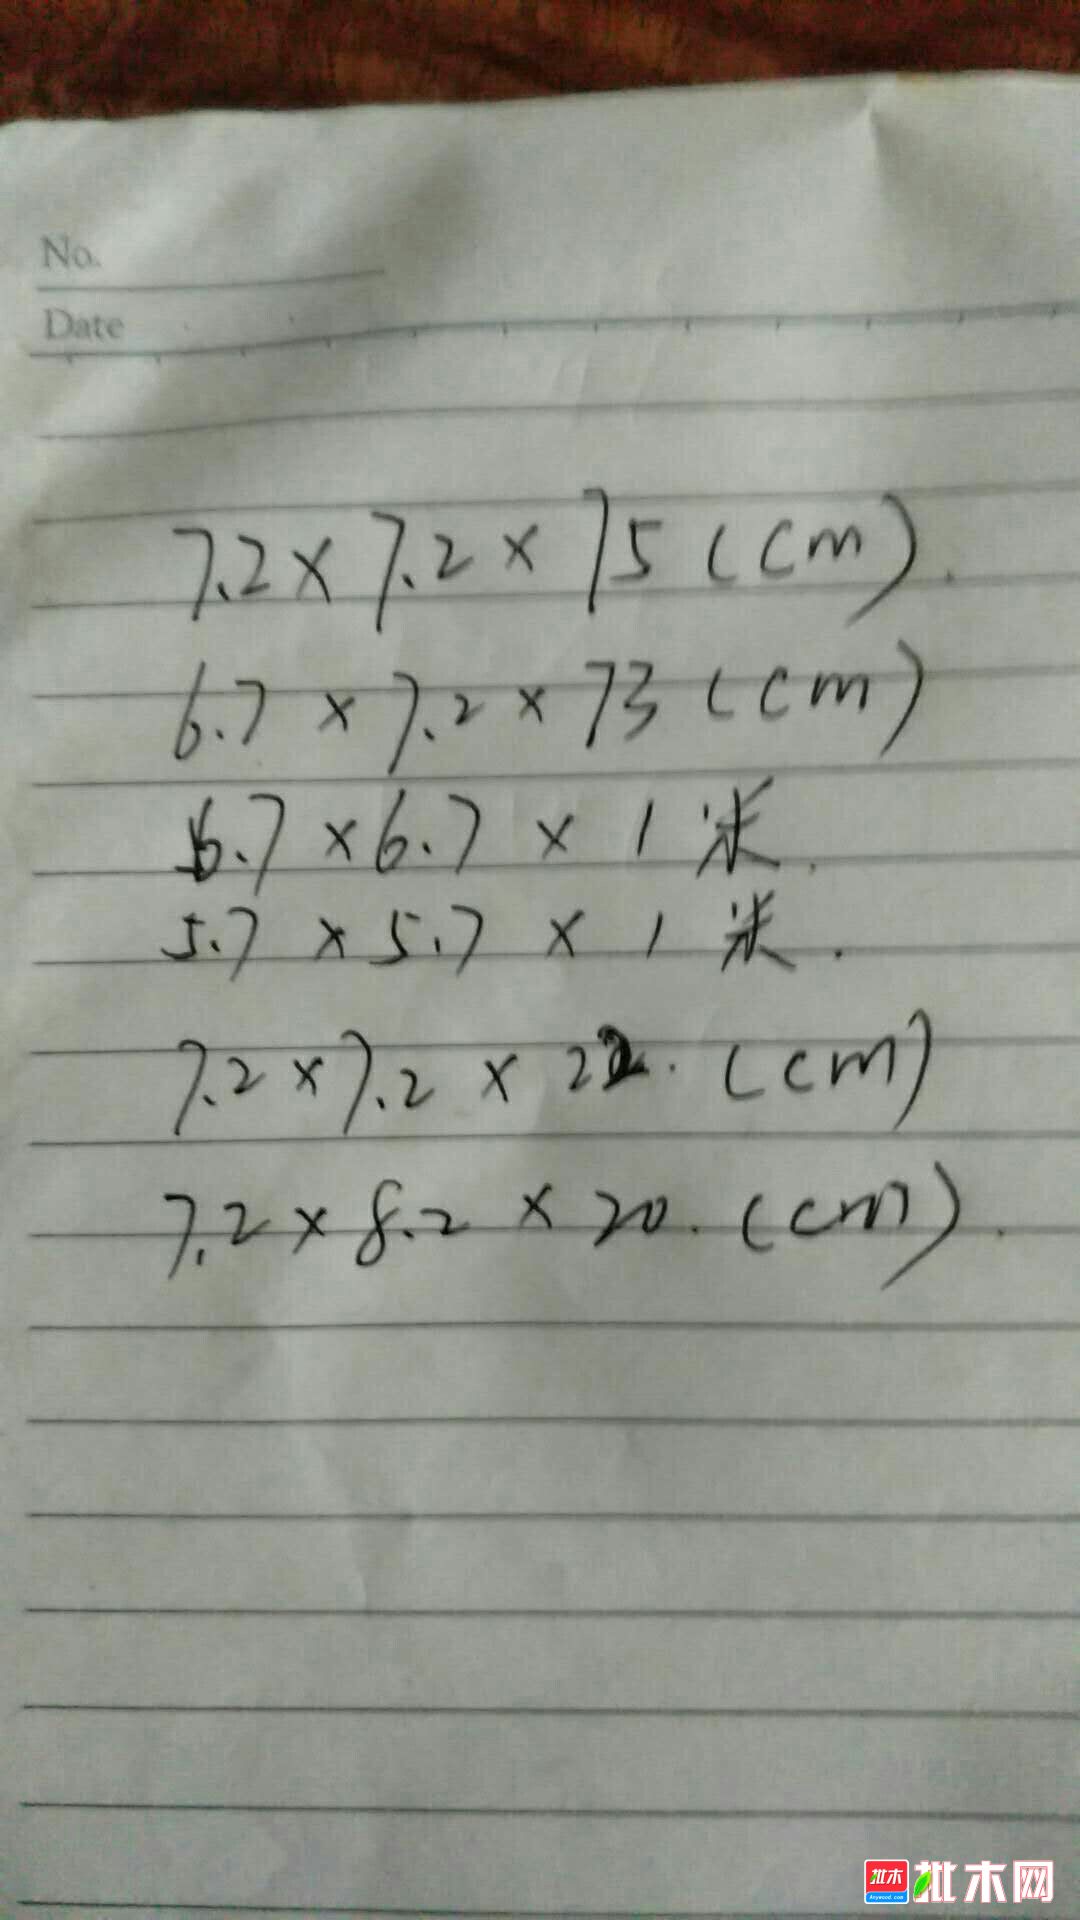 No.
Date
7.2 × 7.2 × 75 (cm).
6.7 × 7.2 × 73 (cm)
6.7 × 6.7 × 1 米.
5.7 × 5.7 × 1 米.
7.2 × 7.2 × 22. (cm)
7.2 × 8.2 × 20. (cm).
批木 批木网
Anywood.com